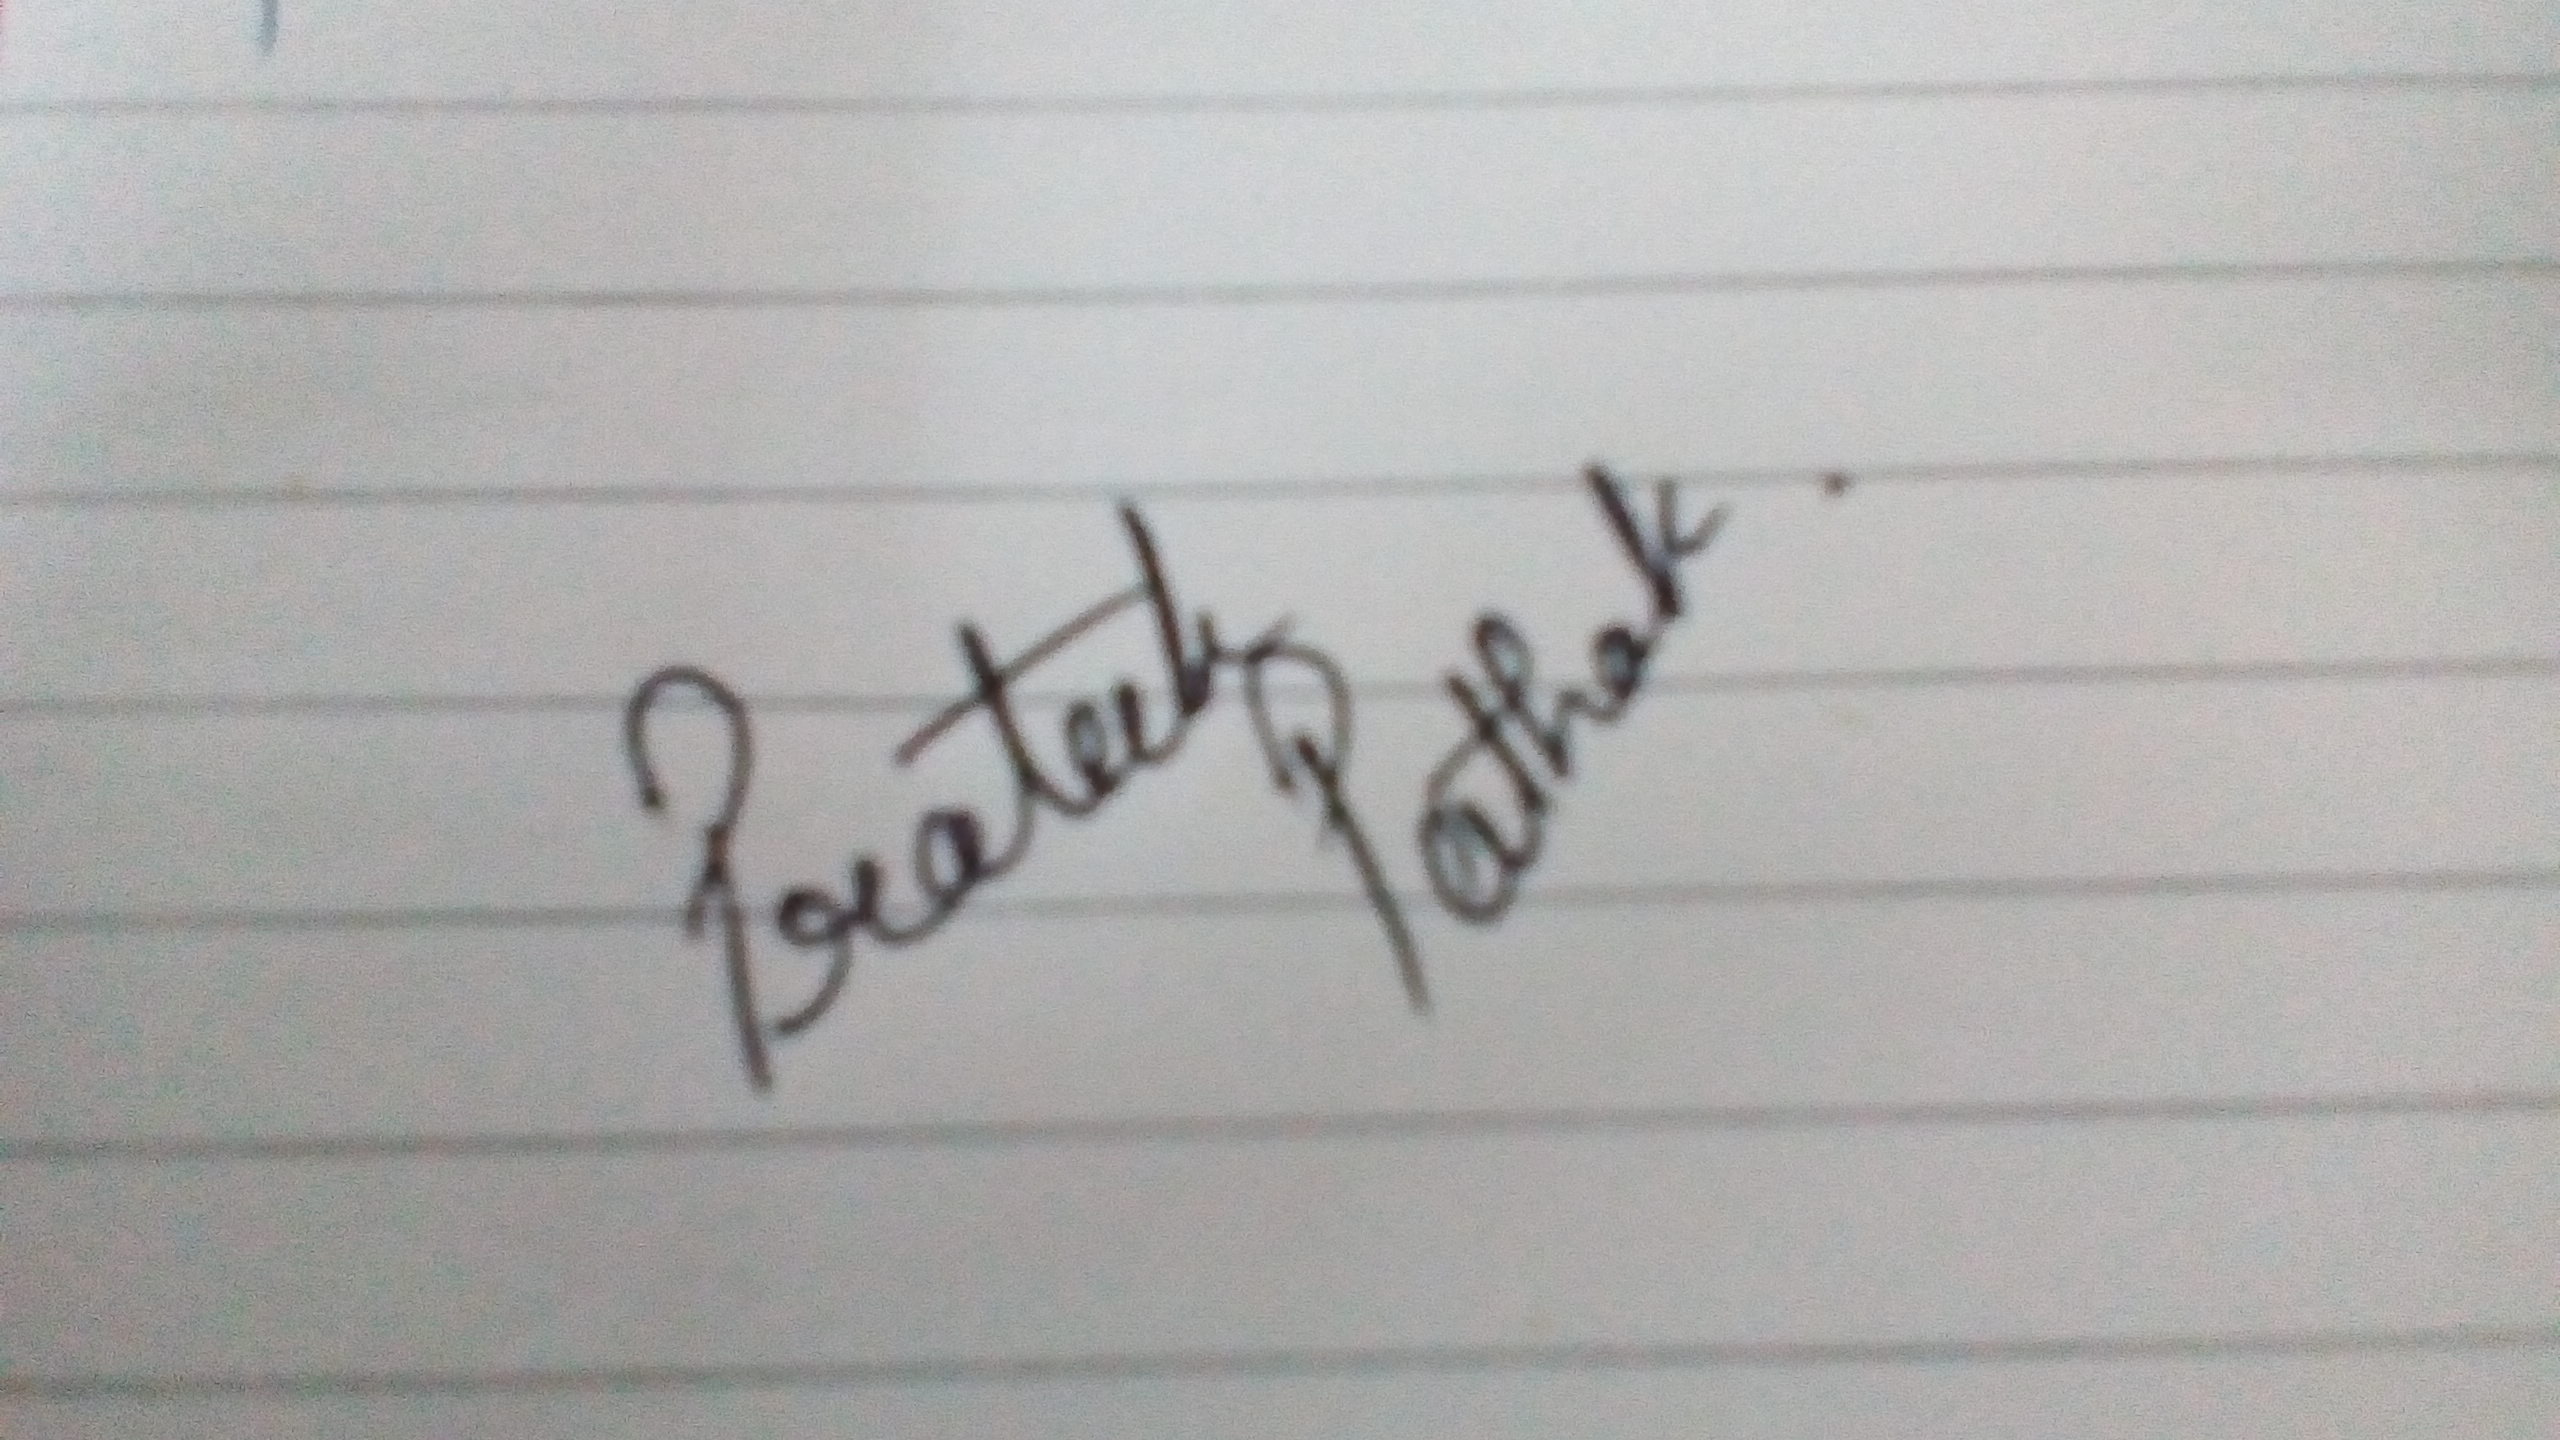 Prateek Pathak.